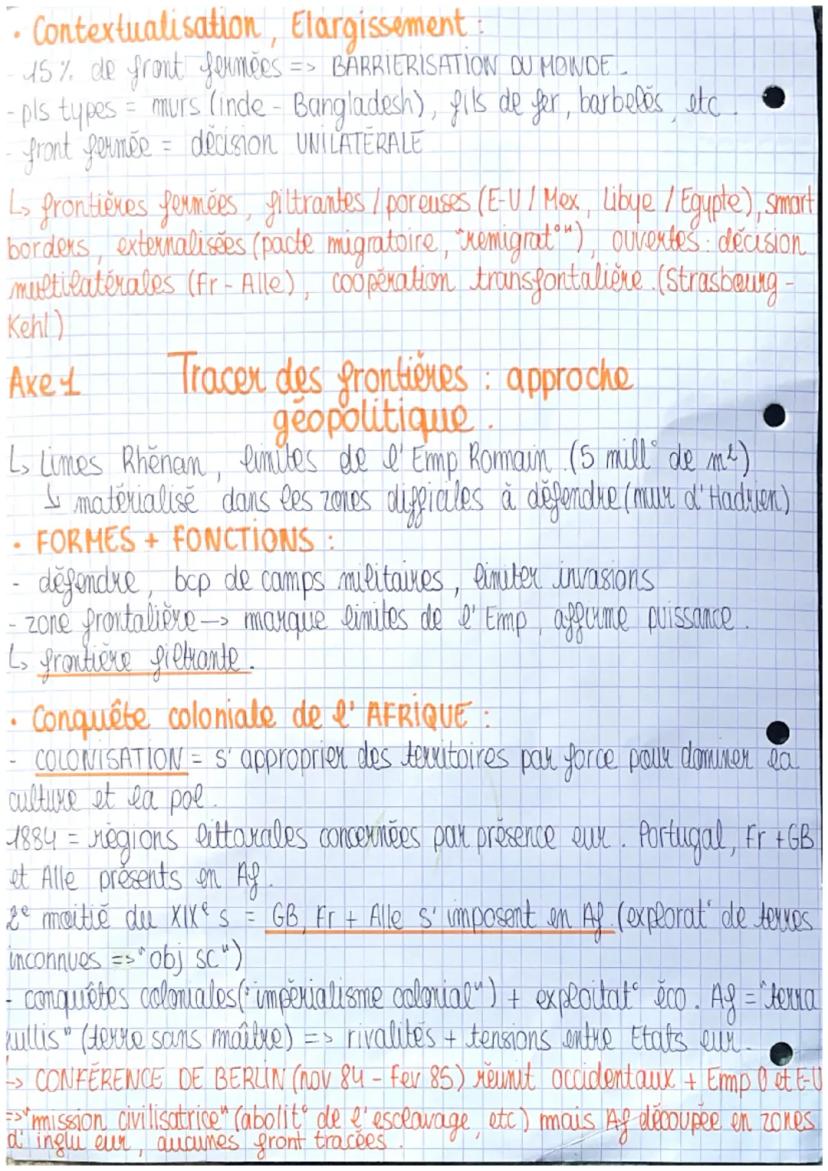 • Contextualisation, Elargissement :
- 15% de front fermées => BARRIERISATION DU MONDE.
- pls types = murs (inde - Bangladesh), fils de fer, barbelés, etc.
- front fermée = décision UNILATÉRALE
↳ frontières fermées, filtrantes / poreuses (E-U / Mex, Libye / Egypte), smart
borders, externalisées (pacte migratoire, "remigrat°"), ouvertes : décision
multilatérales (Fr - Alle), coopération transfontalière. (Strasbourg -
Kehl)
Axe 1 Tracer des frontières : approche
géopolitique.
↳ Limes Rhénan, limites de l'Emp Romain. (5 mill° de m²)
↳ matérialisé dans les zones difficiales à défendre (mur d'Hadrien)
• FORMES + FONCTIONS :
- défendre, bcp de camps militaires, limiter invasions
- zone frontalière -> marque limites de l'Emp, affirme puissance.
↳ frontière filtrante.
• Conquête coloniale de l'AFRIQUE :
- COLONISATION = s'approprier des territoires par force pour dominer la
culture et la pol.
1884 = régions littorales concernées par présence eur. Portugal, Fr + GB
et Alle présents en Af.
2e moitié du XIXe s = GB, Fr + Alle s'imposent en Af. (explorat° de terres
inconnues => "obj sc")
- conquêtes coloniales ("impérialisme colonial") + exploitat° éco. Af = "terra
nullis" (terre sans maître) => rivalités + tensions entre Etats eur.
-> CONFÉRENCE DE BERLIN (nov 84 - fev 85) réunit occidentaux + Emp O et E-U
=> "mission civilisatrice" (abolit° de l'esclavage, etc) mais Af découpée en zones
d'influ eur, aucunes front tracées.